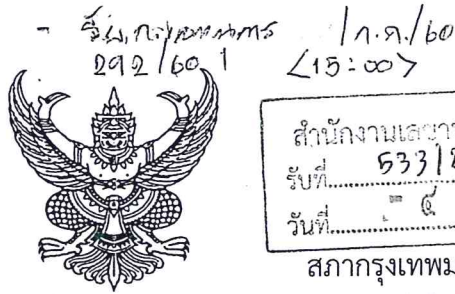 - รับ /ก.ค./60
292/60 <15:00>
สำนักงานเลขา
รับที่ 533/
วันที่ - ๕
สภากรุงเทพม